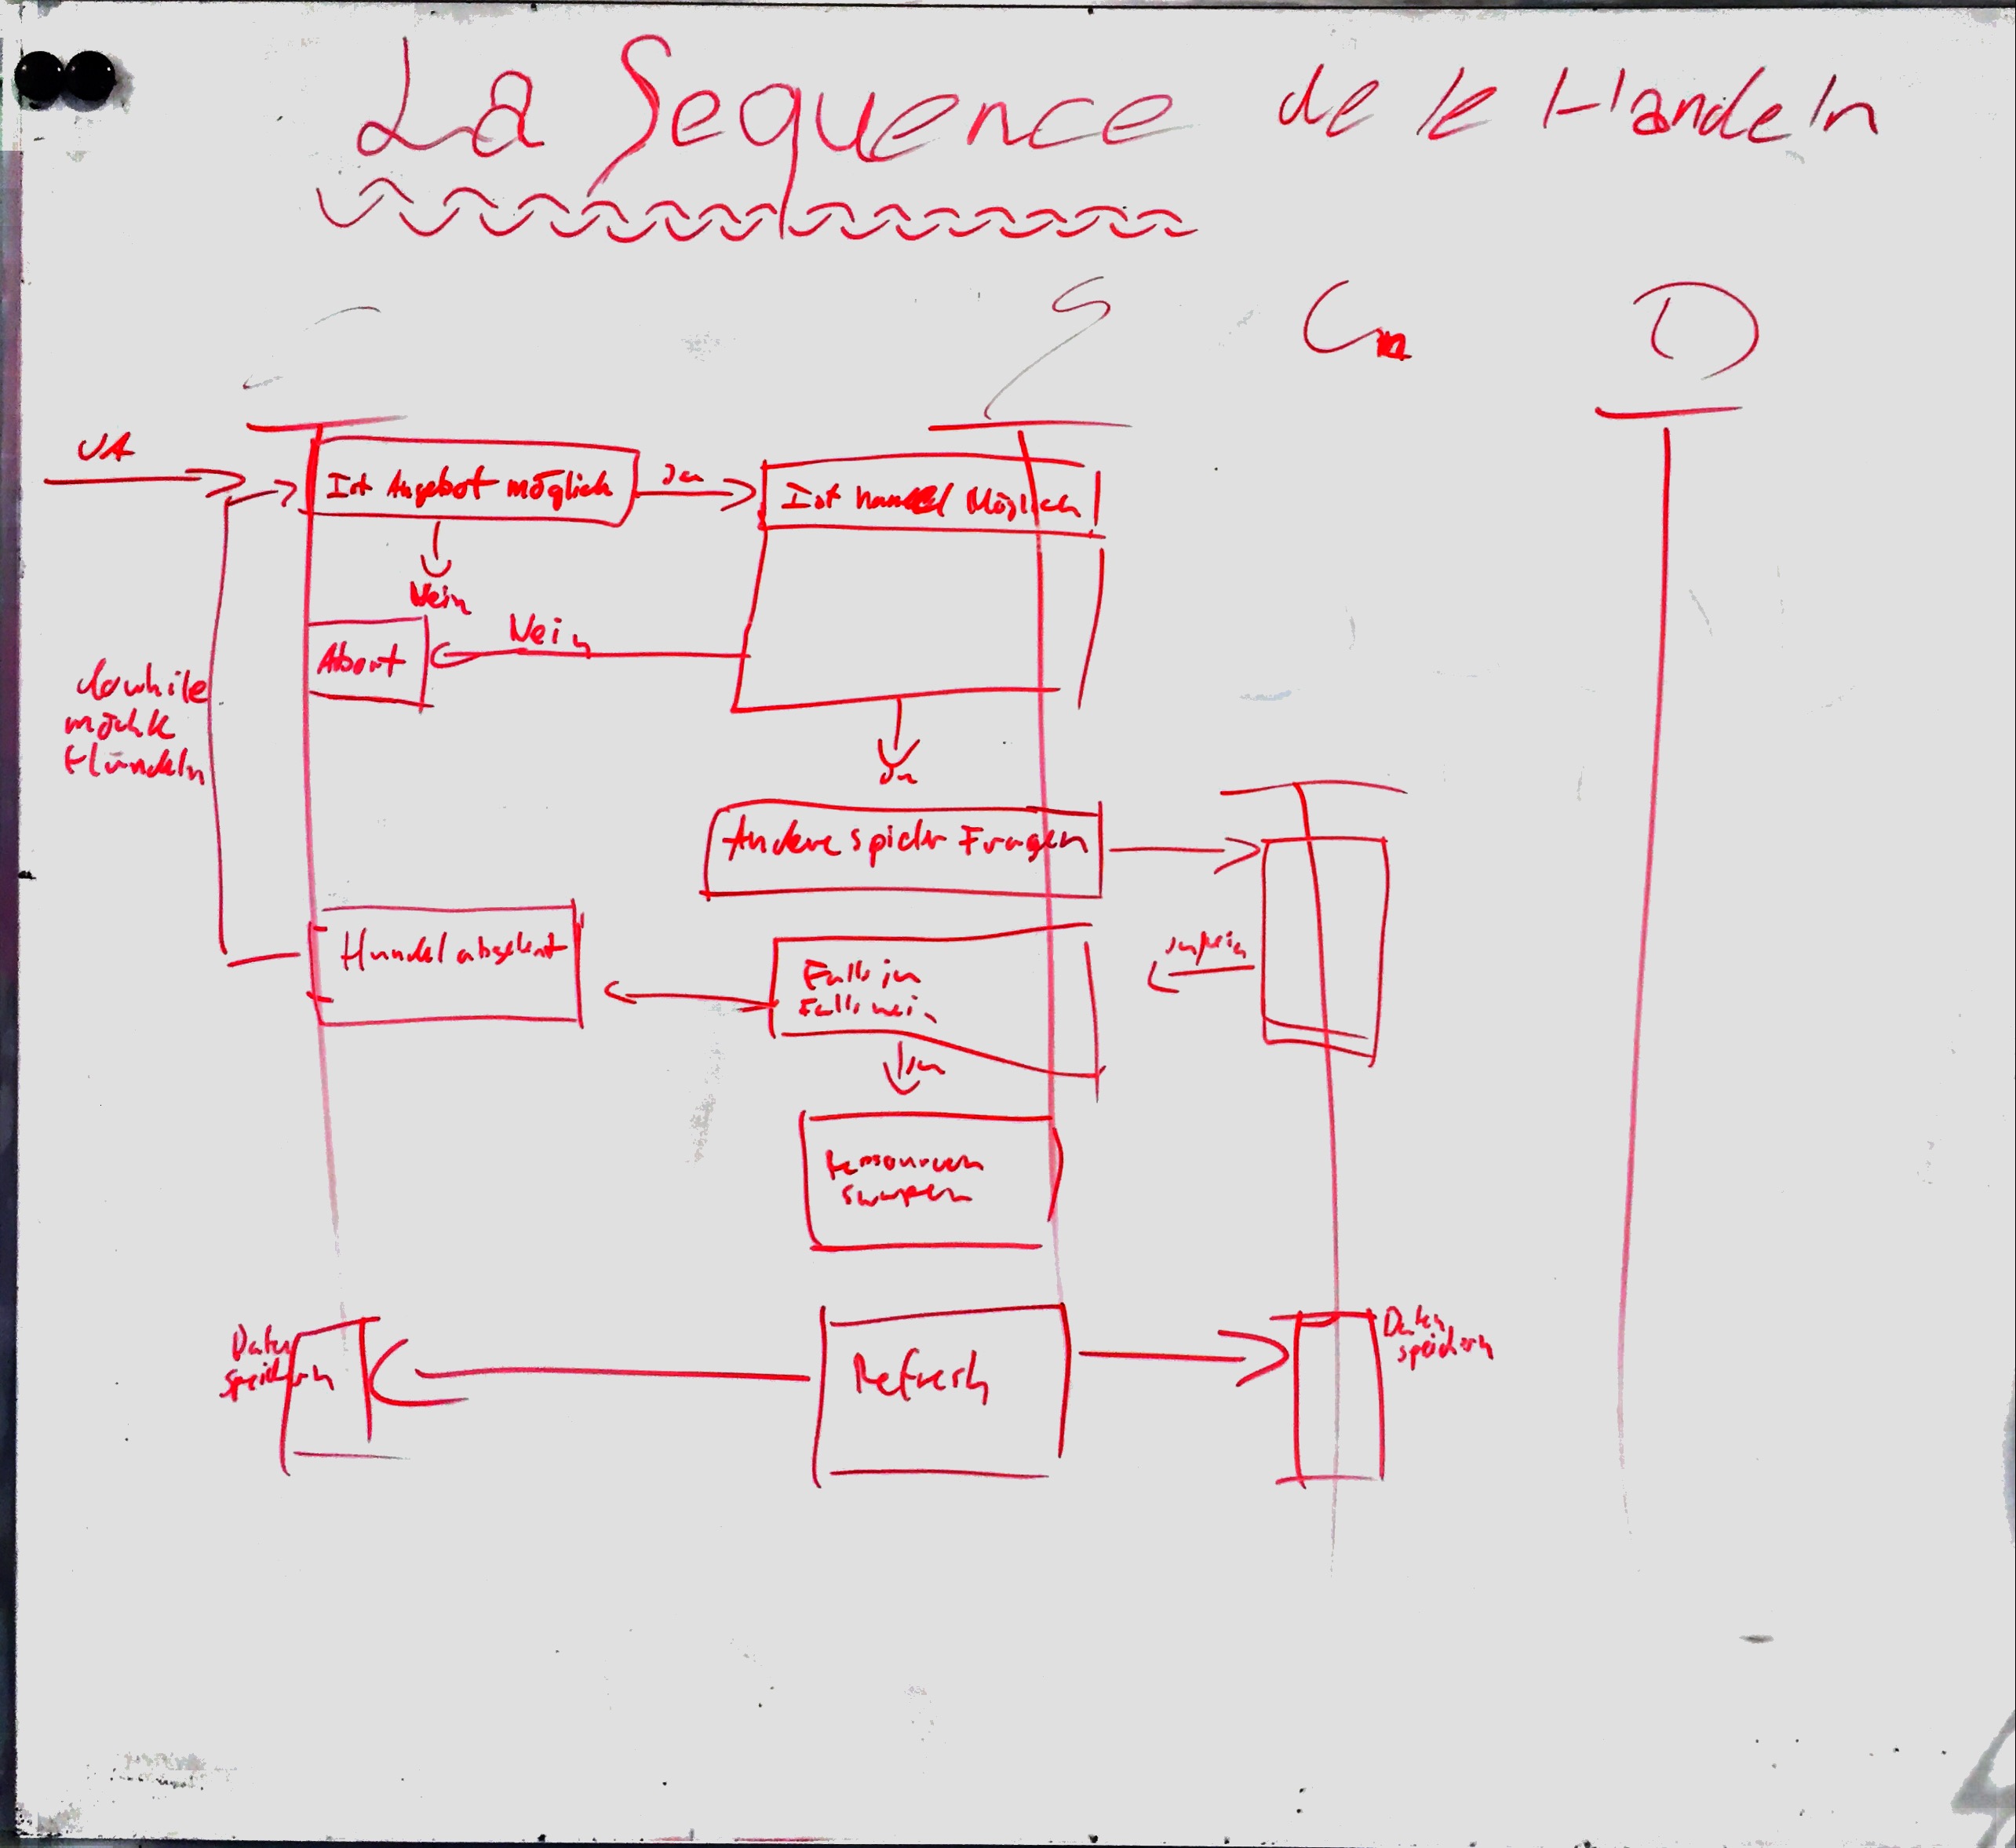 La Sequence de le Handeln
S
Cn
D
UA
Ist Angebot möglich
Ja
Ist handel Möglich
Nein
Abort
Nein
dowhile
möchte
Handeln
Ja
Andere spieler Fragen
Handel abgelent
Falls ja
Falls nein
ja/nein
Ja
Ressourcen
swapen
Daten
speichern
Refresh
Daten
speichern